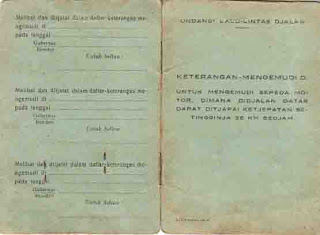 Melihat dan ditjatat dalam daftar-keterangan me-
ngemudi di
pada tanggal
Gubernur
Residen
Untuk beliau :
Melihat dan ditjatat dalam daftar-keterangan me-
ngemudi di
pada tanggal
Gubernur
Residen
Untuk beliau :
Melihat dan ditjatat dalam daftar-keterangan me-
ngemudi di
pada tanggal
Gubernur
Residen
Untuk beliau
UNDANG² LALU-LINTAS DJALAN
KETERANGAN-MENGEMUDI D.
UNTUK MENGEMUDI SEPEDA MO-
TOR, DIMANA DIDJALAN DATAR
DAPAT DITJAPAI KETJEPATAN SE-
TINGGINJA 25 KM SEDJAM.